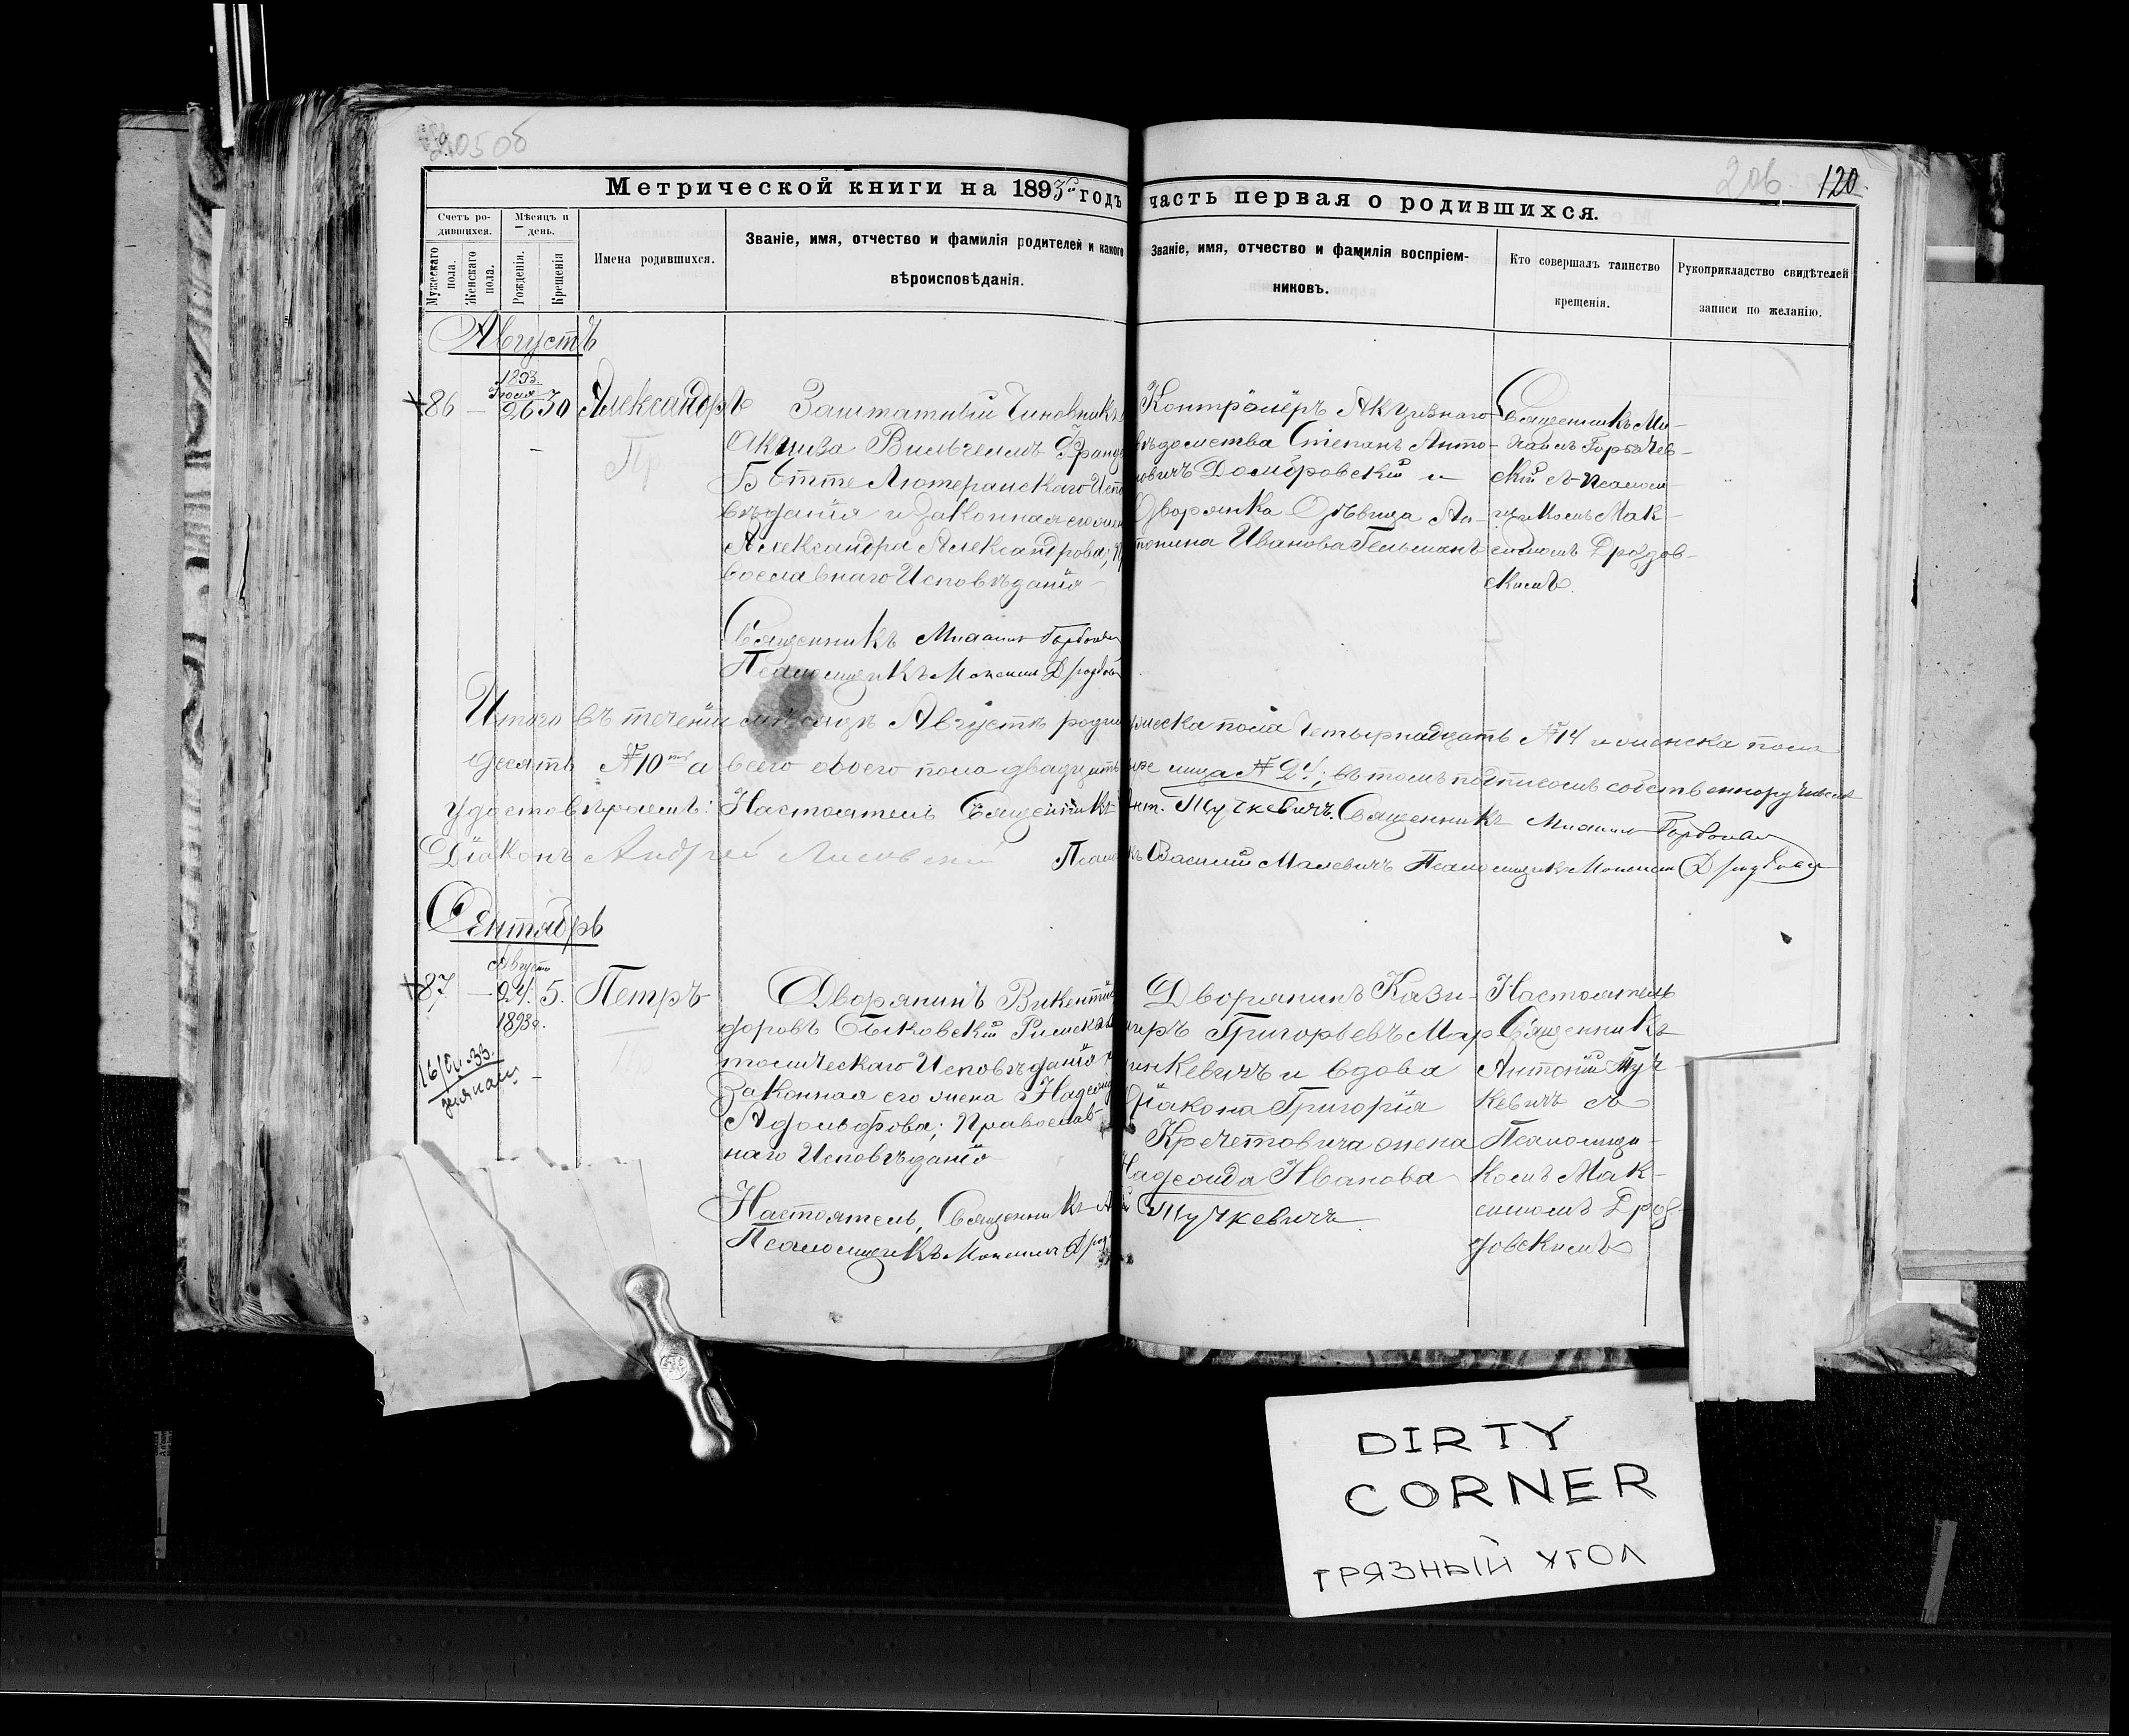 205об
206 120.
Метрической книги на 1893й годъ часть первая о родившихся.
Счетъ родившихся.
Мужескаго пола.
Женскаго пола.
Мѣсяцъ и день.
Рожденія.
Крещенія
Имена родившихся.
Званіе, имя, отчество и фамилія родителей и какого
вѣроисповѣданія.
Званіе, имя, отчество и фамилія воспріем-
никовъ.
Кто совершалъ таинство
крещенія.
Рукоприкладство свидѣтелей
записи по желанію.
Августъ
1893.
86 — 26 30 Александръ
Пр
Заштатный Чиновникъ
Акциза Вильгельмъ Францо
Бетте Лютеранскаго Испо
вѣданія и законная его жен
Александра Александрова; Пр
вославнаго Исповѣданія
Священникъ Михаилъ
Псаломщикъ Максимъ
Контролёръ Акцизнаго
вѣдомства Степанъ Анто-
новичъ Домбровскій и
Дворянка Дѣвица Ан-
тонина Иванова Гельманъ
Священникъ Ми-
хаилъ Горбачев-
скій съ Псалом-
щикомъ Мак-
симомъ Дроздов-
скимъ.
Итого въ теченіи мѣсяцѣ Августѣ роди мужеска пола Четырнадцать №14 и женска пола
десять №10 а всего обоего пола двадцать лица №24; въ томъ подписомъ собственноручнымъ
удостовѣряемъ: Настоятель Священникъ Ант. Тучкевичъ. Священникъ Михаилъ
Діаконъ Андрей Лисовскій Василій Малевичъ Псаломщикъ Максимъ
Сентябрь
Августа
87 — 24. 5. Петръ
1893г.
Пр
16/IV-33.
Дворянинъ Викентій
доровъ Быковскій Римска
толическаго Исповѣданія и
законная его жена Надеж
Адольфова; Православ-
наго Исповѣданія
Настоятель, Священникъ А
Псаломщикъ Максимъ Дроз
Дворянинъ Кази-
миръ Григорьевъ Мар
цинкевичъ и вдова
Діакона Григорія
Кречетовича жена
Надежда Иванова
Тучкевичъ
Настоятель
Священникъ
Антоній Туч-
кевичъ съ
Псаломщи-
комъ Мак-
симомъ Дроз-
довскимъ
DIRTY
CORNER
ГРЯЗНЫЙ УГОЛ